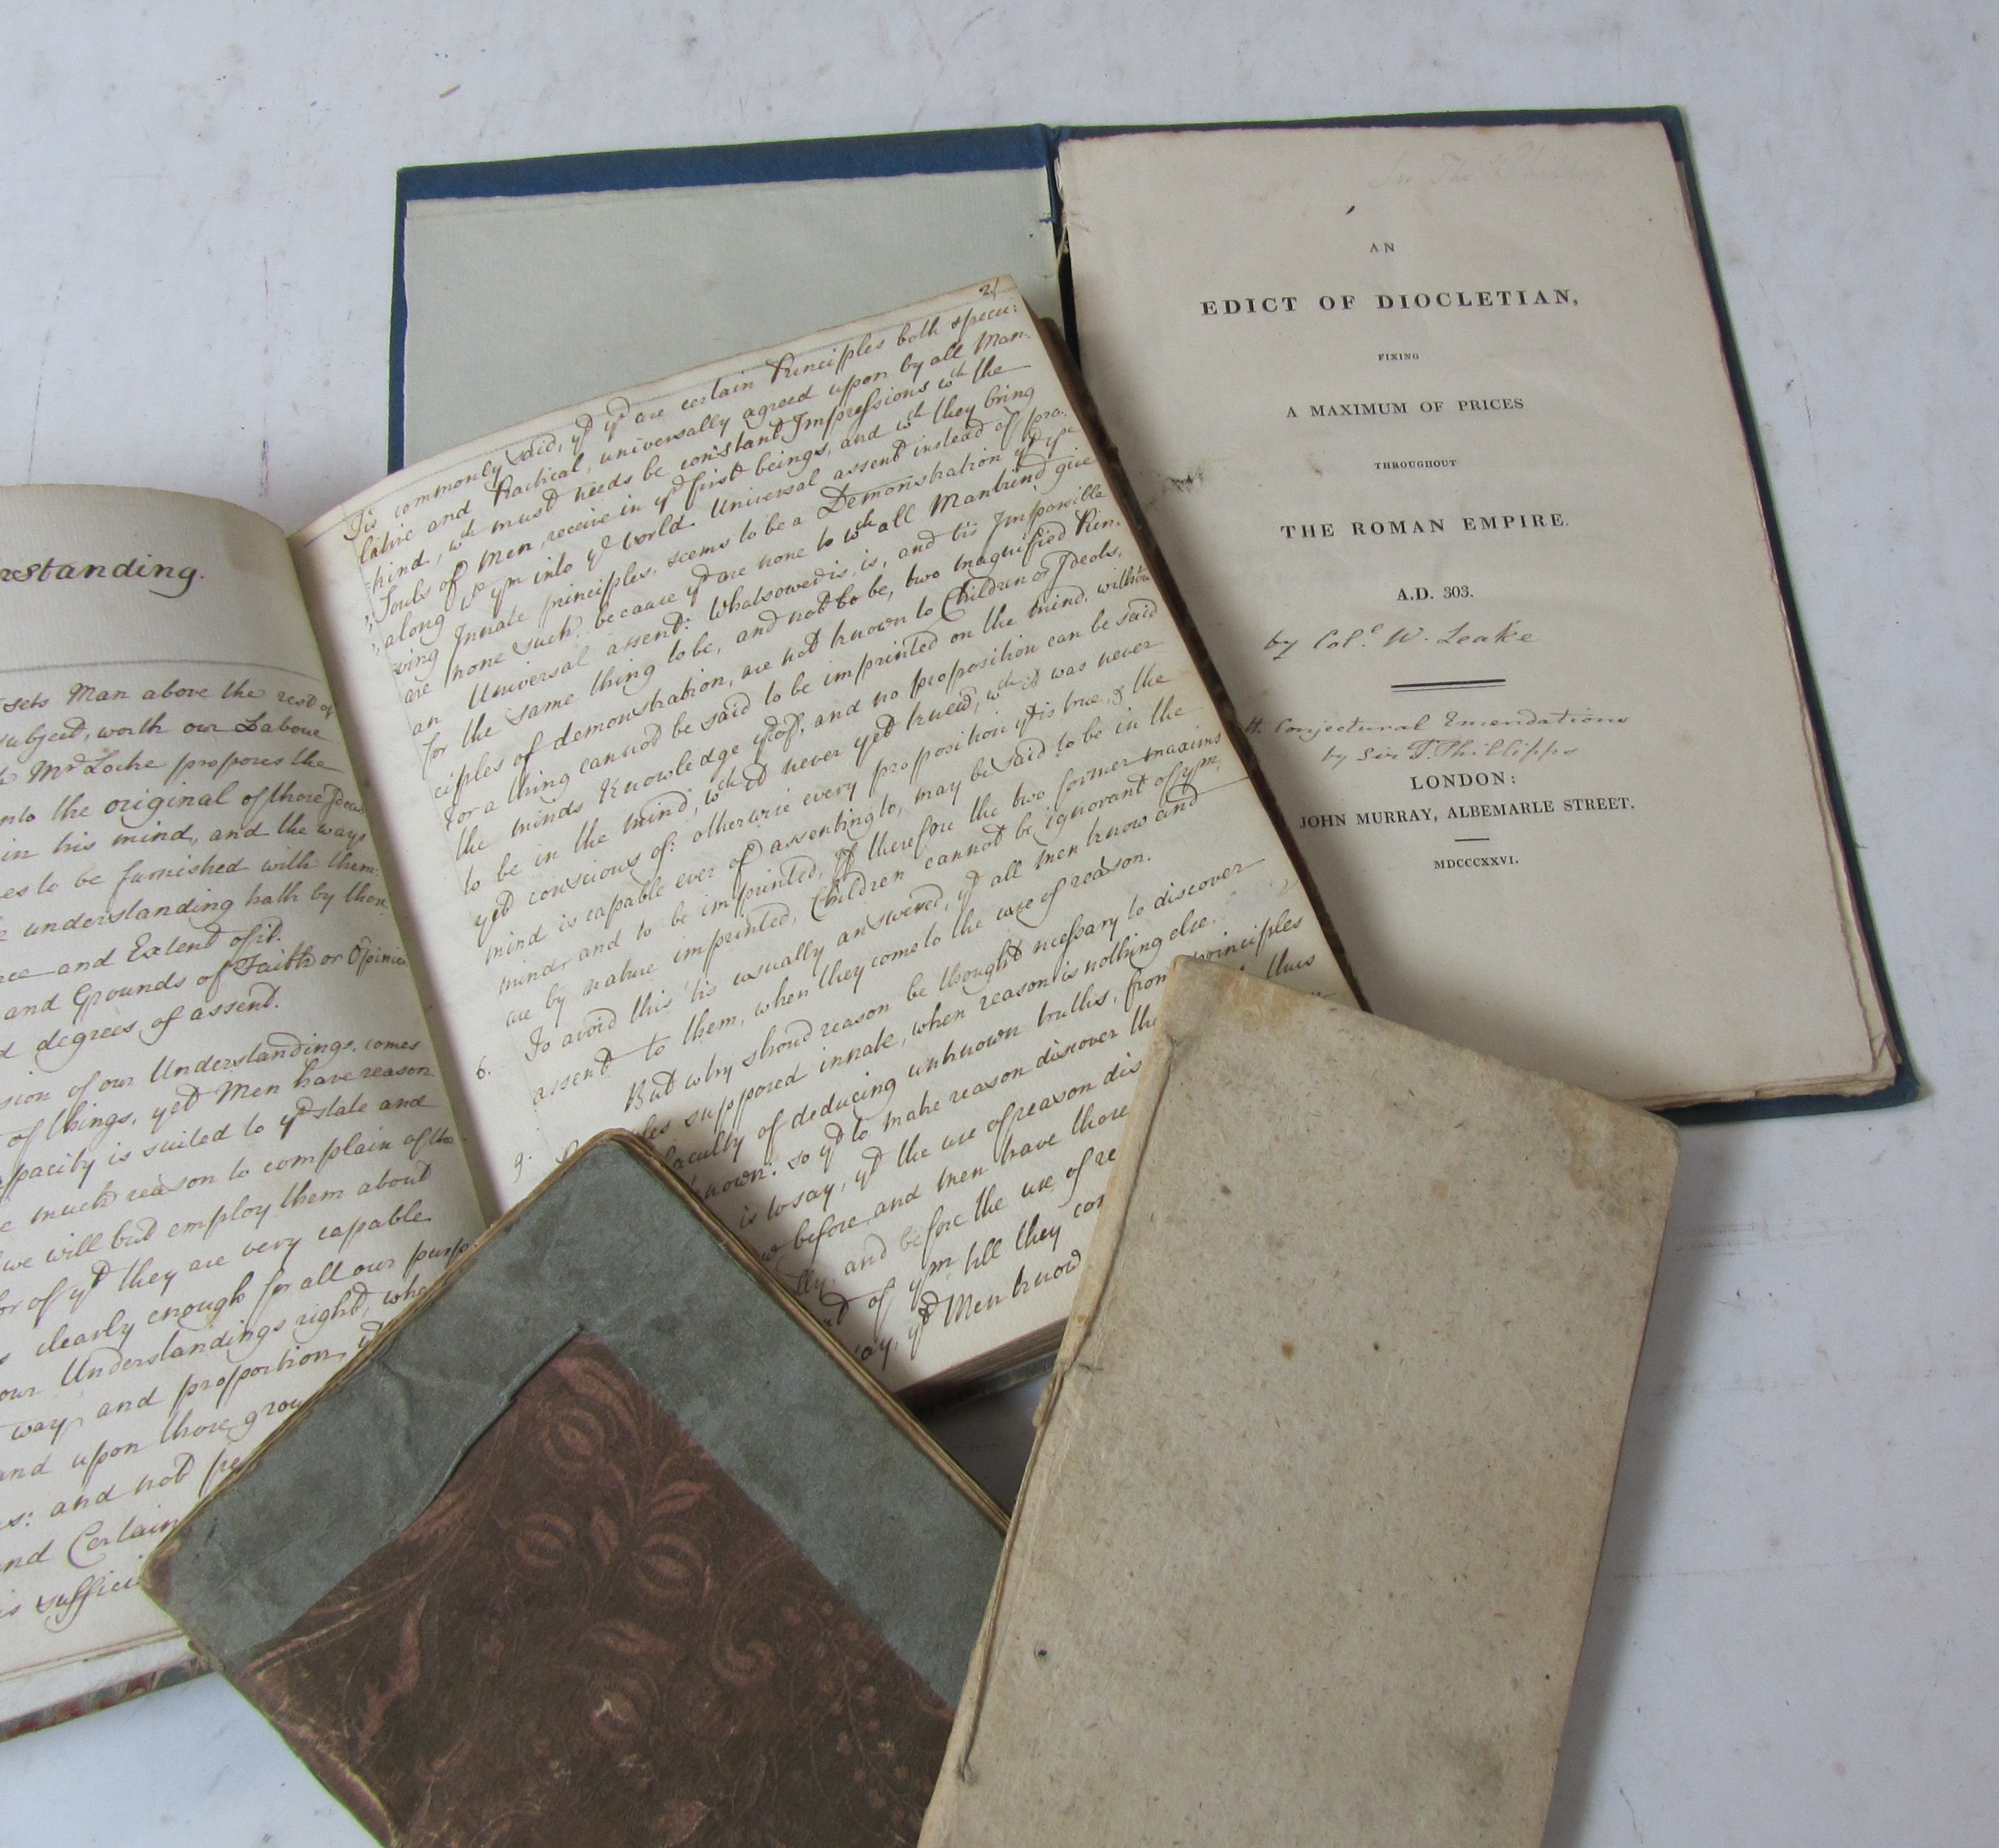 rstanding.
sets Man above the rest of
subject, worth our Labour
Mr. Locke proposes the
into the original of those Ideas,
in his mind, and the ways
es to be furnished with them:
understanding hath by those
and Extent of it.
and Grounds of Faith or Opinion
degrees of assent.
sion of our Understandings, comes
of things, yet Men have reason
pacity is suited to yt state and
much reason to complain of the
we will but employ them about
for of yt they are very capable
clearly enough for all our purp
our Understandings right, whe
way and proportion, yt
and upon those grou
s: and not pe
and Certain
is suffici
2
Tis commonly said, yt yr are certain Principles both specu:
lative and Practical, universally agreed upon by all Man-
kind, wch must needs be constant Impressions wch the
Souls of Men receive in yr first beings, and wch they bring
along wth ym into ye World. Universal assent instead of pro-
ving Innate principles, seems to be a Demonstration yt yr
are none such: because yr are none to wch all Mankind give
an Universal assent: Whatsoever is, is, and tis Impossible
for the same thing to be, and not to be, two magnified Prin-
ciples of demonstration, are not known to Children or Ideots,
for a thing cannot be said to be imprinted on the mind, without
the minds Knowledge yrof, and no proposition can be said
to be in the mind, wch it never yet knew, wch it was never
yet conscious of: otherwise every proposition yt is true, & the
mind is capable ever of assenting to, may be said to be in the
mind, and to be imprinted, If therefore the two former maxims
are by nature imprinted, Children cannot be ignorant of ym,
To avoid this tis usually answered, yt all men know and
assent to them, when they come to the use of reason.
6. But why should reason be thought necessary to discover
les supposed innate, when reason is nothing else.
9. faculty of deducing unknown truths, from principles
nown: so yt to make reason discover th thus
is to say, yt the use of reason dis
before, and men have those
and before the use of re
of ym, till they co
ay, yt Men know
AN
EDICT OF DIOCLETIAN,
FIXING
A MAXIMUM OF PRICES
THROUGHOUT
THE ROMAN EMPIRE.
A.D. 303.
by Col.l W. Leake
th Conjectural Emendations
by Sir T. Phillipps
LONDON:
JOHN MURRAY, ALBEMARLE STREET.
MDCCCXXVI.